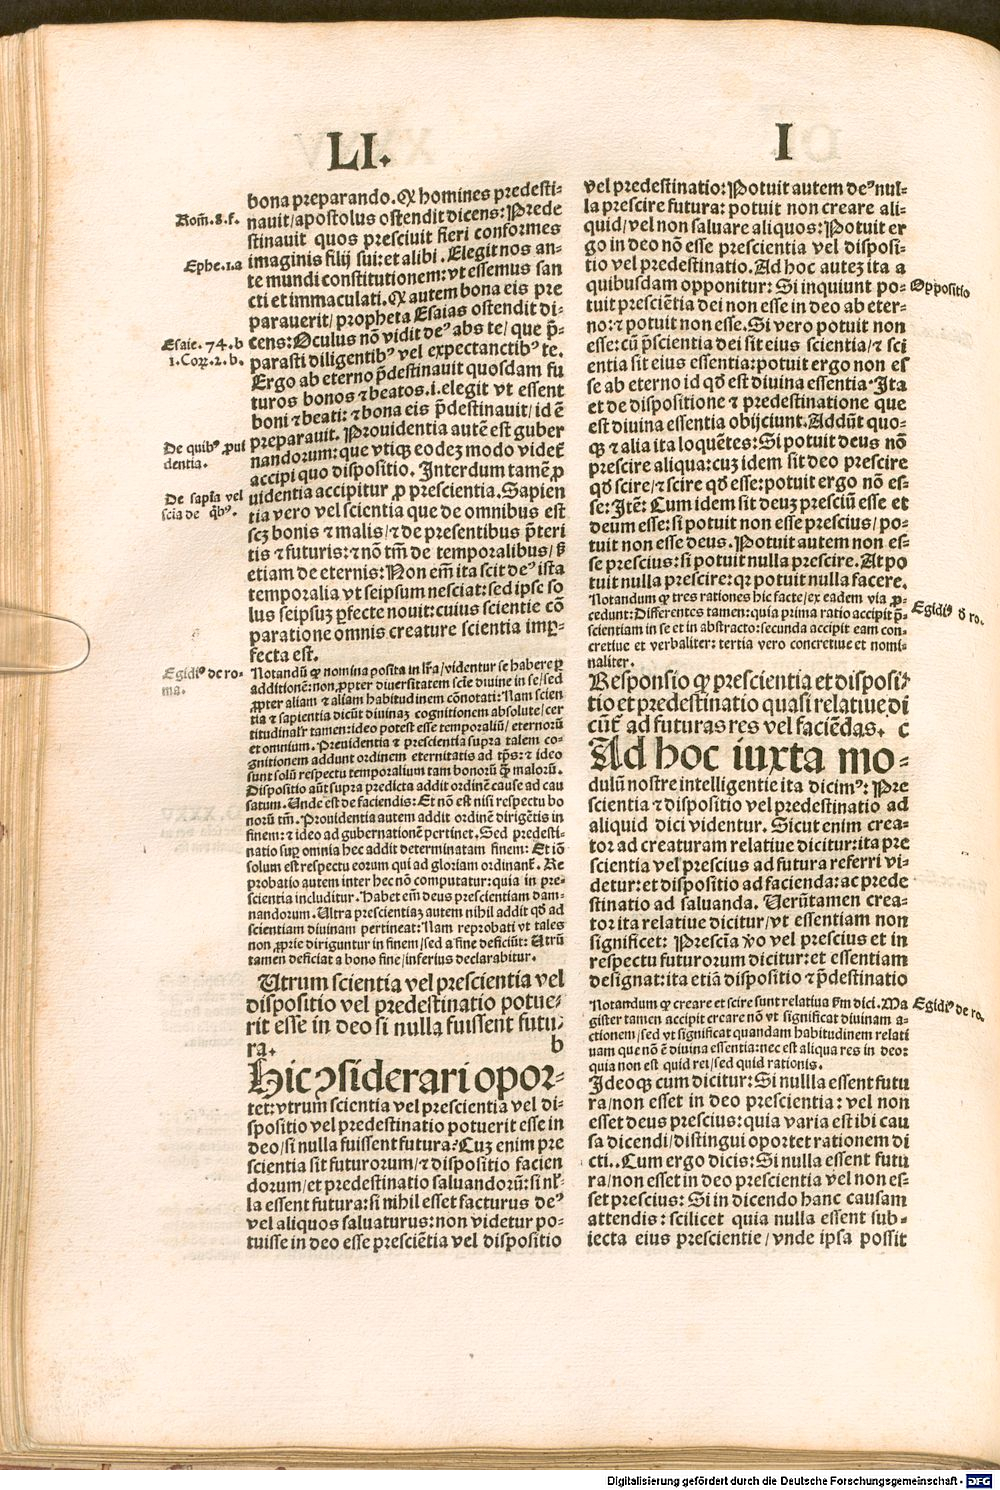 LI.
I
bona preparando. Qꝙ homines predesti⸗
nauit/apostolus ostendit dicens: Prede
stinauit quos presciuit fieri conformes
imaginis filij sui: et alibi. Elegit nos an⸗
te mundi constitutionem: vt essemus san
cti et immaculati. Qꝙ autem bona eis pre
parauerit/ propheta Esaias ostendit di⸗
cens: Oculus nō vidit deꝰ abs te/ que p̄⸗
parasti diligentibꝰ vel expectanctibꝰ te.
Ergo ab eterno p̄destinauit quosdam fu
turos bonos ⁊ beatos.i.elegit vt essent
boni ⁊ beati: ⁊ bona eis p̄destinauit/ id ē
preparauit. Prouidentia autē est guber
nandorum: que vtiqꝫ eodez modo videt̄
accipi quo dispositio. Interdum tamē ꝓ
uidentia accipitur ꝓ prescientia. Sapien
tia vero vel scientia que de omnibus est
scꝫ bonis ⁊ malis/ ⁊ de presentibus p̄teri
tis ⁊ futuris: ⁊ nō tm̄ de temporalibus/ s̄
etiam de eternis: Non em̄ ita scit deꝰ ista
temporalia vt seipsum nesciat: sed ipse so
lus seipsuꝫ ꝑfecte nouit: cuius scientie cō
paratione omnis creature scientia imꝑ⸗
fecta est.
Rom̄.8.f.
Ephe.1.a
Esaie.74.b
1.Coꝛ.2.b.
De quibꝰ ꝓui
dentia.
De sapīa vel
scia de q̄bꝰ.
Egidiꝰ de ro⸗
ma.
Notandū ꝙ nomina posita in lr̄a/videntur se habere ꝑ
additionē: non ꝓpter diuersitatem scīe diuine in se/sed
ꝓpter aliam ⁊ aliam habitudinem cōnotati: Nam scien
tia ⁊ sapientia dicūt diuinaꝫ cognitionem absolute/cer
titudinalr̄ tamen: ideo potest esse temporaliū/ eternorū
et omnium. Preuidentia ⁊ prescientia supra talem co⸗
gnitionem addunt ordinem eternitatis ad tp̄s: ⁊ ideo
sunt solū respectu temporalium tam bonorū q̄ꝫ malorū.
Dispositio aūt supra predicta addit ordinē cause ad cau
satum. Unde est de faciendis: Et nō est nisi respectu bo
norū tm̄. Prouidentia autem addit ordinē dirigētis in
finem: ⁊ ideo ad gubernationē pertinet. Sed predesti⸗
natio suꝑ omnia hec addit determinatam finem: Et iō
solum est respectu eorum qui ad gloriam ordinant̄. Re
probatio autem inter hec nō computatur: quia in pre⸗
scientia includitur. Habet em̄ deus prescientiam dam⸗
nandorum. Ultra prescientiaꝫ autem nihil addit qd̄ ad
scientiam diuinam pertineat: Nam reprobati vt tales
non ꝓprie diriguntur in finem/sed a fine deficiūt: Utrū
tamen deficiat a bono fine/inferius declarabitur.
Utrum scientia vel prescientia vel
dispositio vel predestinatio potue⸗
rit esse in deo si nulla fuissent futu⸗
ra. b
Hic ↄsiderari opor⸗
tet: vtrum scientia vel prescientia vel di⸗
spositio vel predestinatio potuerit esse in
deo/si nulla fuissent futura? Cuꝫ enim pre
scientia sit futurorum/ ⁊ dispositio facien
dorum/ et predestinatio saluandorū: si nł⸗
la essent futura: si nihil esset facturus deꝰ
vel aliquos saluaturus: non videtur po⸗
tuisse in deo esse presciētia vel dispositio
vel predestinatio: Potuit autem deꝰ nul⸗
la prescire futura: potuit non creare ali⸗
quid/ vel non saluare aliquos: Potuit er
go in deo nō esse prescientia vel disposi⸗
tio vel predestinatio. Ad hoc autez ita a
quibusdam opponitur: Si inquiunt po⸗
tuit presciētia dei non esse in deo ab eter⸗
no: ⁊ potuit non esse. Si vero potuit non
esse: cū p̄scientia dei sit eius scientia/ ⁊ sci
entia sit eius essentia: potuit ergo non es
se ab eterno id qd̄ est diuina essentia. Ita
et de dispositione ⁊ predestinatione que
est diuina essentia obijciunt. Addūt quo⸗
qꝫ ⁊ alia ita loquētes: Si potuit deus nō
prescire aliqua: cuꝫ idem sit deo prescire
qd̄ scire/ ⁊ scire qd̄ esse: potuit ergo nō es⸗
se: Itē: Cum idem sit deuꝫ presciū esse et
deum esse: si potuit non esse prescius/ po⸗
tuit non esse deus. Potuit autem non es⸗
se prescius: si potuit nulla prescire. At po
tuit nulla prescire: qꝛ potuit nulla facere.
Oppositio
Notandum ꝙ tres rationes hic facte/ ex eadem via ꝓ⸗
cedunt: Differentes tamen: quia prima ratio accipit p̄⸗
scientiam in se et in abstracto: secunda accipit eam con⸗
cretiue et verbaliter: tertia vero concretiue et nomi⸗
naliter.
Egidiꝰ d̄ ro.
Responsio ꝙ prescientia et disposi⸗
tio et predestinatio quasi relatiue di
cūt̄ ad futuras res vel faciēdas. c
Ad hoc iuxta mo⸗
dulū nostre intelligentie ita dicimꝰ: Pre
scientia ⁊ dispositio vel predestinatio ad
aliquid dici videntur. Sicut enim crea⸗
tor ad creaturam relatiue dicitur: ita pre
scientia vel prescius ad futura referri vi⸗
detur: et dispositio ad facienda: ac prede
stinatio ad saluanda. Uerūtamen crea⸗
tor ita relatiue dicitur/ vt essentiam non
significet: Presciā v̄o vel prescius et in
respectu futurorum dicitur: et essentiam
designat: ita etiā dispositio ⁊ p̄destinatio
Notandum ꝙ creare et scire sunt relatiua ẜm dici. Ma
gister tamen accipit creare nō vt significat diuinam a⸗
ctionem/ sed vt significat quandam habitudinem relati
uam que nō ē diuina essentia: nec est aliqua res in deo:
quia non est quid rei/ sed quid rationis.
Egidiꝰ de ro.
Ideoqꝫ cum dicitur: Si nullla essent futu
ra/ non esset in deo prescientia: vel non
esset deus prescius: quia varia est ibi cau
sa dicendi/ distingui oportet rationem di
cti.. Cum ergo dicis: Si nulla essent futu
ra/ non esset in deo prescientia vel non es⸗
set prescius: Si in dicendo hanc causam
attendis: scilicet quia nulla essent sub⸗
iecta eius prescientie/ vnde ipsa possit
Digitalisierung gefördert durch die Deutsche Forschungsgemeinschaft - DFG